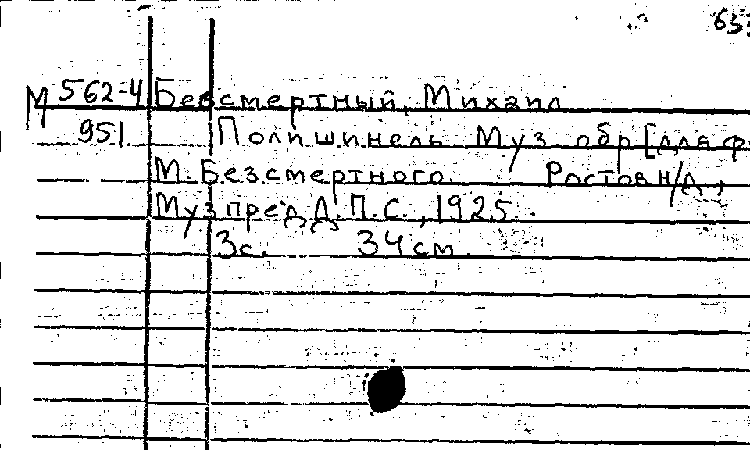 М 562-4 Бессмертный, Михаил
951 Полишинель Муз обр [для ф
М. Безсмертного. Ростов н/Д,
Муз пред Д.П.С., 1925.
3с. 34 см.